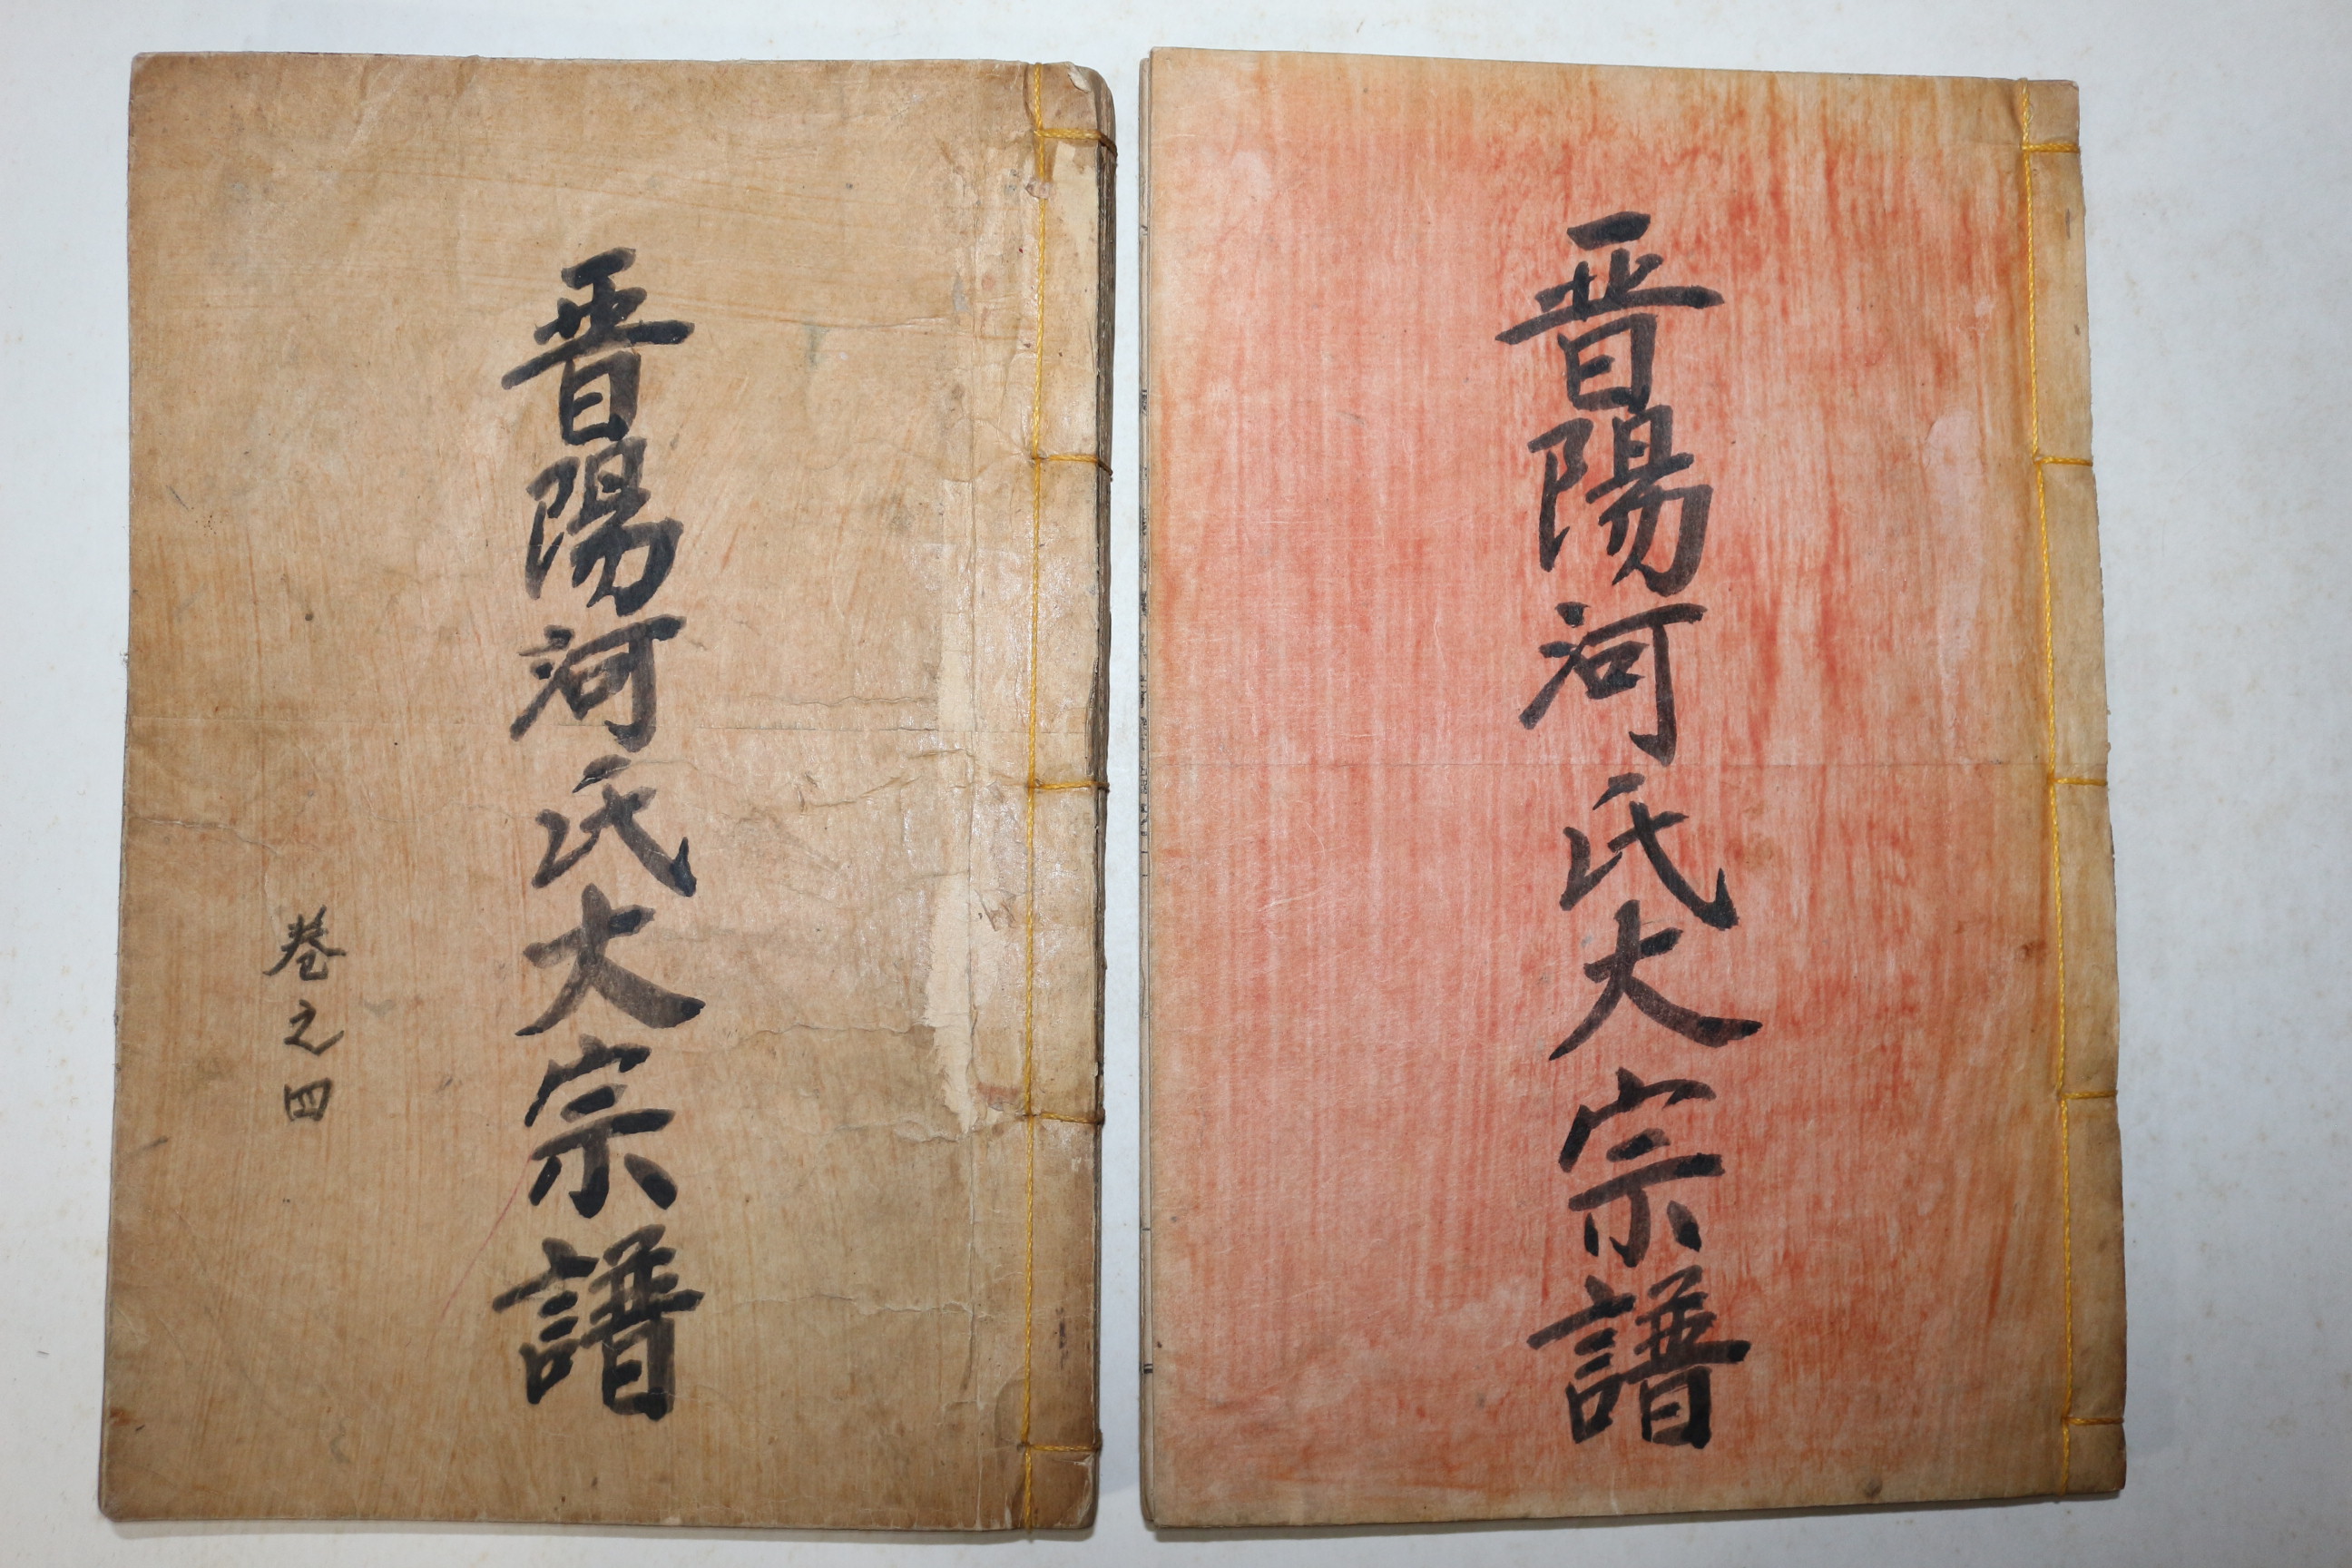 晋陽河氏大宗譜
晋陽河氏大宗譜
巻之四